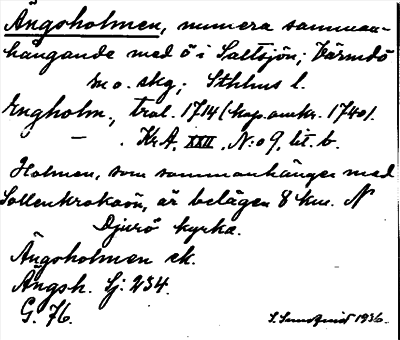 Ängsholmen, numera samman-
hängande med ö i Saltsjön; Värmdö
sn o. skg; Sthlms l.
Engholm, tral. 1714 (kop. omkr. 1740).
— . Kr.A. XXII, N:o 9. lit. b.
Holmen, som sammanhänger med
Sollenkrokaön, är belägen 8 km. N
Djurö kyrka.
Ängsholmen ek.
Ängsh. Sj. 234.
G. 76.
S. Sundqvist 1936.